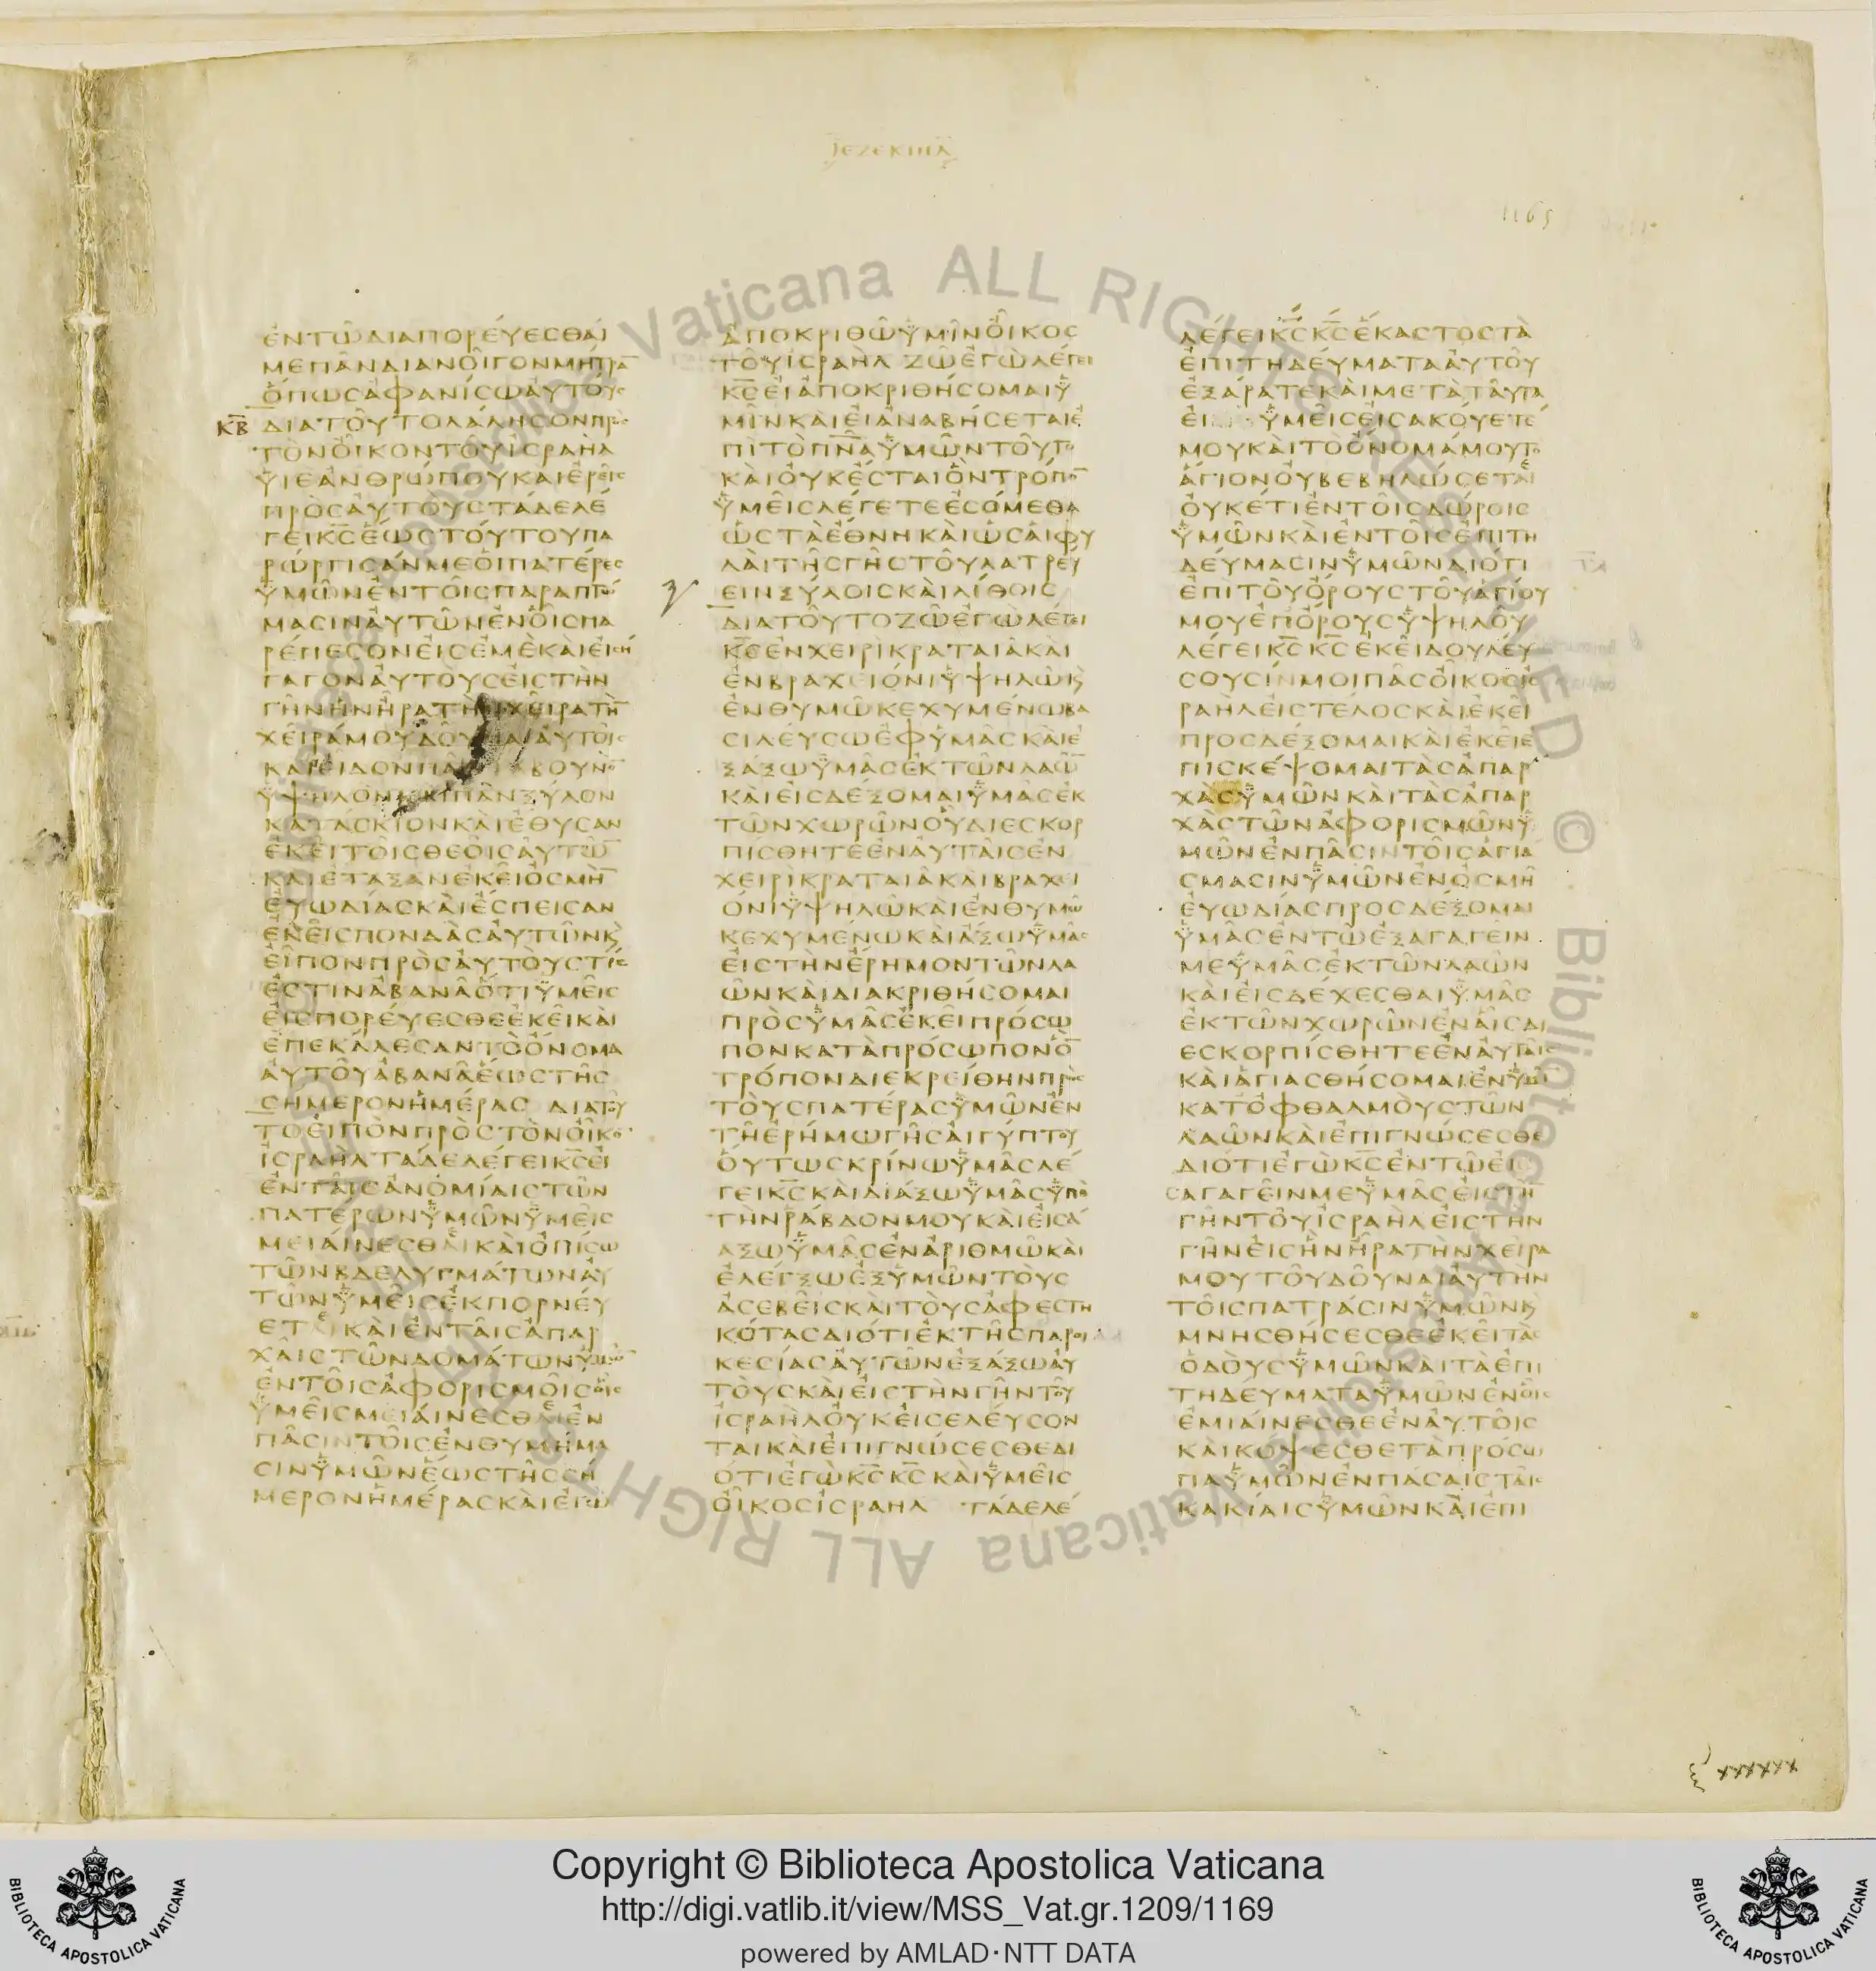 ΙΕΖΕΚΙΗΛ
1165
ΕΝΤΩΔΙΑΠΟΡΕΥΕΣΘΑΙ
ΜΕΠΑΝΔΙΑΝΟΙΓΟΝΜΗΤΡΑ̅
ΟΠΩΣΑΦΑΝΙΣΩΑΥΤΟΥΣ
ΚΒ̅ ΔΙΑΤΟΥΤΟΛΑΛΗΣΟΝΠΡΟΣ
ΤΟΝΟΙΚΟΝΤΟΥΙΣΡΑΗΛ
ΥΙΕΑΝΘΡΩΠΟΥΚΑΙΕΡΕΙΣ
ΠΡΟΣΑΥΤΟΥΣΤΑΔΕΛΕ
ΓΕΙΚ̅Σ̅ΕΩΣΤΟΥΤΟΥΠΑ
ΡΩΡΓΙΣΑΝΜΕΟΙΠΑΤΕΡΕΣ
ΥΜΩΝΕΝΤΟΙΣΠΑΡΑΠΤΩ
ΜΑΣΙΝΑΥΤΩΝΕΝΟΙΣΠΑ
ΡΕΠΕΣΟΝΕΙΣΕΜΕΚΑΙΕΙΣΗ
ΓΑΓΟΝΑΥΤΟΥΣΕΙΣΤΗΝ
ΓΗΝΗΝΗΡΑΤΗΝΧΕΙΡΑ
ΧΕΙΡΑΜΟΥΔΟΥΝΑΙΑΥΤΟΙΣ
ΚΑΙΕΙΔΟΝΠΑΝΒΟΥΝΟ̅
ΥΨΗΛΟΝΚΑΙΠΑΝΞΥΛΟΝ
ΚΑΤΑΣΚΙΟΝΚΑΙΕΘΥΣΑΝ
ΕΚΕΙΤΟΙΣΘΕΟΙΣΑΥΤΩ̅
ΚΑΙΕΤΑΞΑΝΕΚΕΙΟΣΜΗ̅
ΕΥΩΔΙΑΣΚΑΙΕΣΠΕΙΣΑΝ
ΕΚΕΙΣΠΟΝΔΑΣΑΥΤΩΝΚ
ΕΙΠΟΝΠΡΟΣΑΥΤΟΥΣΤΙΣ
ΕΣΤΙΝΑΒΑΝΑΟΤΙΥΜΕΙΣ
ΕΙΣΠΟΡΕΥΕΣΘΕΕΚΕΙΚΑΙ
ΕΠΕΚΑΛΕΣΑΝΤΟΟΝΟΜΑ
ΑΥΤΟΥΑΒΑΝΑΕΩΣΤΗΣ
ΣΗΜΕΡΟΝΗΜΕΡΑΣ ΔΙΑΤΟΥ
ΤΟΕΙΠΟΝΠΡΟΣΤΟΝΟΙΚΟ̅
ΙΣΡΑΗΛΤΑΔΕΛΕΓΕΙΚ̅Σ̅ΕΙ
ΕΝΤΑΙΣΑΝΟΜΙΑΙΣΤΩΝ
ΠΑΤΕΡΩΝΥΜΩΝΥΜΕΙΣ
ΜΕΙΑΙΝΕΣΘΑΙΚΑΙΟΠΙΣΩ
ΤΩΝΒΔΕΛΥΓΜΑΤΩΝΑΥ
ΤΩΝΥΜΕΙΣΕΚΠΟΡΝΕΥ
ΕΤΑΙΚΑΙΕΝΤΑΙΣΑΠΑΡ
ΧΑΙΣΤΩΝΔΟΜΑΤΩΝΥΜΩ̅
ΕΝΤΟΙΣΑΦΟΡΙΣΜΟΙΣΟΙΣ
ΥΜΕΙΣΜΕΙΑΙΝΕΣΘΑΙΕΝ
ΠΑΣΙΝΤΟΙΣΕΝΘΥΜΗΜΑ
ΣΙΝΥΜΩΝΕΩΣΤΗΣΣΗ
ΜΕΡΟΝΗΜΕΡΑΣΚΑΙΕΓΩ
ΑΠΟΚΡΙΘΩΥΜΙΝΟΙΚΟΣ
ΤΟΥΙΣΡΑΗΛ ΖΩΕΓΩΛΕΓΕΙ
Κ̅Σ̅ΕΙΑΠΟΚΡΙΘΗΣΟΜΑΙΥ
ΜΙΝΚΑΙΕΙΑΝΑΒΗΣΕΤΑΙΕ
ΠΙΤΟΠ̅Ν̅Α̅ΥΜΩΝΤΟΥΤΟ
ΚΑΙΟΥΚΕΣΤΑΙΟΝΤΡΟΠΟ̅
ΥΜΕΙΣΛΕΓΕΤΕΕΣΟΜΕΘΑ
ΩΣΤΑΕΘΝΗΚΑΙΩΣΑΙΦΥ
ΛΑΙΤΗΣΓΗΣΤΟΥΛΑΤΡΕΥ
ΕΙΝΞΥΛΟΙΣΚΑΙΛΙΘΟΙΣ
ΔΙΑΤΟΥΤΟΖΩΕΓΩΛΕΓΕΙ
Κ̅Σ̅ΕΝΧΕΙΡΙΚΡΑΤΑΙΑΚΑΙ
ΕΝΒΡΑΧΕΙΟΝΙΥΨΗΛΩΚ
ΕΝΘΥΜΩΚΕΧΥΜΕΝΩΒΑ
ΣΙΛΕΥΣΩΕΦΥΜΑΣΚΑΙΕ
ΞΑΞΩΥΜΑΣΕΚΤΩΝΛΑΩ̅
ΚΑΙΕΙΣΔΕΞΟΜΑΙΥΜΑΣΕΚ
ΤΩΝΧΩΡΩΝΟΥΔΙΕΣΚΟΡ
ΠΙΣΘΗΤΕΕΝΑΥΤΑΙΣΕΝ
ΧΕΙΡΙΚΡΑΤΑΙΑΚΑΙΒΡΑΧΕΙ
ΟΝΙΥΨΗΛΩΚΑΙΕΝΘΥΜΩ
ΚΕΧΥΜΕΝΩΚΑΙΑΞΩΥΜΑΣ
ΕΙΣΤΗΝΕΡΗΜΟΝΤΩΝΛΑ
ΩΝΚΑΙΔΙΑΚΡΙΘΗΣΟΜΑΙ
ΠΡΟΣΥΜΑΣΕΚΕΙΠΡΟΣΩ
ΠΟΝΚΑΤΑΠΡΟΣΩΠΟΝΟ̅
ΤΡΟΠΟΝΔΙΕΚΡΕΙΘΗΝΠΡΟΣ
ΤΟΥΣΠΑΤΕΡΑΣΥΜΩΝΕΝ
ΤΗΕΡΗΜΩΓΗΣΑΙΓΥΠΤΟΥ
ΟΥΤΩΣΚΡΙΝΩΥΜΑΣΛΕ
ΓΕΙΚ̅Σ̅ΚΑΙΔΙΑΞΩΥΜΑΣΥΠΟ
ΤΗΝΡΑΒΔΟΝΜΟΥΚΑΙΕΙΣΑ
ΑΞΩΥΜΑΣΕΝΑΡΙΘΜΩΚΑΙ
ΕΛΕΓΞΩΕΞΥΜΩΝΤΟΥΣ
ΑΣΕΒΕΙΣΚΑΙΤΟΥΣΑΦΕΣΤΗ
ΚΟΤΑΣΔΙΟΤΙΕΚΤΗΣΠΑΡΟΙ
ΚΕΣΙΑΣΑΥΤΩΝΕΞΑΞΩΑΥ
ΤΟΥΣΚΑΙΕΙΣΤΗΝΓΗΝΤΟΥ
ΙΣΡΑΗΛΟΥΚΕΙΣΕΛΕΥΣΟΝ
ΤΑΙΚΑΙΕΠΙΓΝΩΣΕΣΘΕΔΙ
ΟΤΙΕΓΩΚ̅Σ̅Κ̅Σ̅ΚΑΙΥΜΕΙΣ
ΟΙΚΟΣΙΣΡΑΗΛ ΤΑΔΕΛΕ
ΛΕΓΕΙΚ̅Σ̅Κ̅Σ̅ΕΚΑΣΤΟΣΤΑ
ΕΠΙΤΗΔΕΥΜΑΤΑΑΥΤΟΥ
ΕΞΑΡΑΤΕΚΑΙΜΕΤΑΤΑΥΤΑ
ΕΙ ΥΜΕΙΣΕΙΣΑΚΟΥΕΤΕ
ΜΟΥΚΑΙΤΟΟΝΟΜΑΜΟΥΤΟ
ΑΓΙΟΝΟΥΒΕΒΗΛΩΣΕΤΑΙ
ΟΥΚΕΤΙΕΝΤΟΙΣΔΩΡΟΙΣ
ΥΜΩΝΚΑΙΕΝΤΟΙΣΕΠΙΤΗ
ΔΕΥΜΑΣΙΝΥΜΩΝΔΙΟΤΙ
ΕΠΙΤΟΥΟΡΟΥΣΤΟΥΑΓΙΟΥ
ΜΟΥΕΠΟΡΟΥΣΥΨΗΛΟΥ
ΛΕΓΕΙΚ̅Σ̅Κ̅Σ̅ΕΚΕΙΔΟΥΛΕΥ
ΣΟΥΣΙΝΜΟΙΠΑΣΟΙΚΟΣΙΣ
ΡΑΗΛΕΙΣΤΕΛΟΣΚΑΙΕΚΕΙ
ΠΡΟΣΔΕΞΟΜΑΙΚΑΙΕΚΕΙΕ
ΠΙΣΚΕΨΟΜΑΙΤΑΣΑΠΑΡ
ΧΑΣΥΜΩΝΚΑΙΤΑΣΑΠΑΡ
ΧΑΣΤΩΝΑΦΟΡΙΣΜΩΝΥ
ΜΩΝΕΝΠΑΣΙΝΤΟΙΣΑΓΙΑ
ΣΜΑΣΙΝΥΜΩΝΕΝΟΣΜΗ
ΕΥΩΔΙΑΣΠΡΟΣΔΕΞΟΜΑΙ
ΥΜΑΣΕΝΤΩΕΞΑΓΑΓΕΙΝ
ΜΕΥΜΑΣΕΚΤΩΝΛΑΩΝ
ΚΑΙΕΙΣΔΕΧΕΣΘΑΙΥΜΑΣ
ΕΚΤΩΝΧΩΡΩΝΕΝΑΙΣΔΙ
ΕΣΚΟΡΠΙΣΘΗΤΕΕΝΑΥΤΑΙΣ
ΚΑΙΑΓΙΑΣΘΗΣΟΜΑΙΕΝΥΜΙΝ
ΚΑΤΟΦΘΑΛΜΟΥΣΤΩΝ
ΛΑΩΝΚΑΙΕΠΙΓΝΩΣΕΣΘΕ
ΔΙΟΤΙΕΓΩΚ̅Σ̅ΕΝΤΩΕΙ
ΣΑΓΑΓΕΙΝΜΕΥΜΑΣΕΙΣΤΗ̅
ΓΗΝΤΟΥΙΣΡΑΗΛΕΙΣΤΗΝ
ΓΗΝΕΙΣΗΝΗΡΑΤΗΝΧΕΙΡΑ
ΜΟΥΤΟΥΔΟΥΝΑΙΑΥΤΗΝ
ΤΟΙΣΠΑΤΡΑΣΙΝΥΜΩΝΚ
ΜΝΗΣΘΗΣΕΣΘΕΕΚΕΙΤΑΣ
ΟΔΟΥΣΥΜΩΝΚΑΙΤΑΕΠΙ
ΤΗΔΕΥΜΑΤΑΥΜΩΝΕΝΟΙΣ
ΕΜΙΑΙΝΕΣΘΕΕΝΑΥΤΟΙΣ
ΚΑΙΚΟΨΕΣΘΕΤΑΠΡΟΣΩ
ΠΑΥΜΩΝΕΝΠΑΣΑΙΣΤΑΙΣ
ΚΑΚΙΑΙΣΥΜΩΝΚΑΙΕΠΙ
Vaticana ALL RIGHTS RESERVED © Biblioteca Apostolica Vaticana ALL RIGHTS
Copyright © Biblioteca Apostolica Vaticana
http://digi.vatlib.it/view/MSS_Vat.gr.1209/1169
powered by AMLAD·NTT DATA
BIBLIOTECA APOSTOLICA VATICANA
BIBLIOTECA APOSTOLICA VATICANA